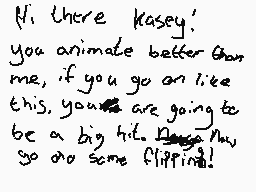 Hi there Kasey!
you animate better than
me, if you go on like
this, you are going to
be a big hit. Now,
go do some flippin!